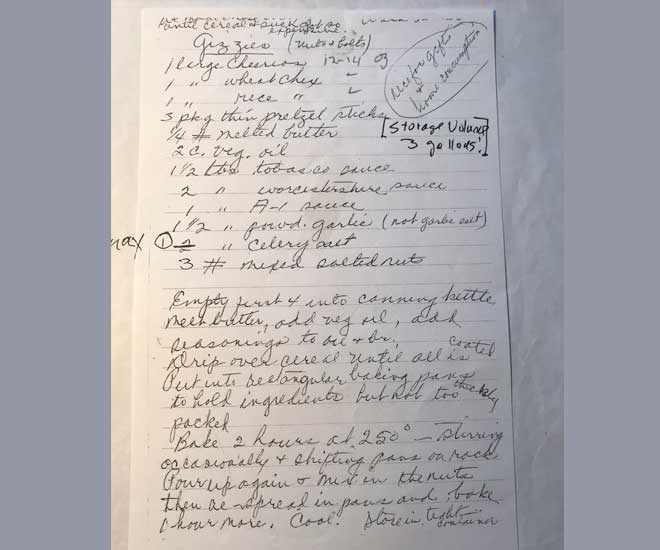 until cereal & such got so
expensive.
Gizzies (nuts & bolts)
1 large Cheerios 12-14 oz
1 " wheat chex "
1 " rice " "
nice for gifts
&
home consumption
3 pkg thin pretzel sticks
1/4 # melted butter
[Storage Volume
3 gallons!]
2 c. veg. oil
1 1/2 tbs tobasco sauce
2 " worcestershire sauce
1 " A-1 sauce
1 1/2 " powd. garlic (not garlic salt)
max ① 2 " celery salt
3 # mixed salted nuts
Empty first 4 into canning kettle
melt butter, add veg oil, add
seasonings to oil & br.
Drip over cereal until all is coated
Put into rectangular baking pans
to hold ingredients but not too thickly
packed
Bake 2 hours at 250° — stirring
occasionally & shifting pans on racks
Pour up again & mix in the nuts
then re-spread in pans and bake
1 hour more. Cool. Store in tight
container